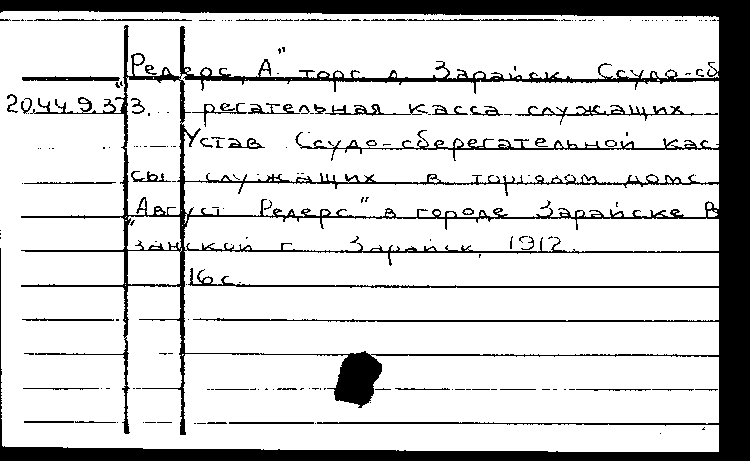 "Редерс, А", торг. д. Зарайск. Ссудо-сб
20.44.9.373. регательная касса служащих.
Устав Ссудо-сберегательной кас-
сы служащих в торговом доме
"Август Редерс" в городе Зарайске Р
занской г. Зарайск, 1912.
16 с.